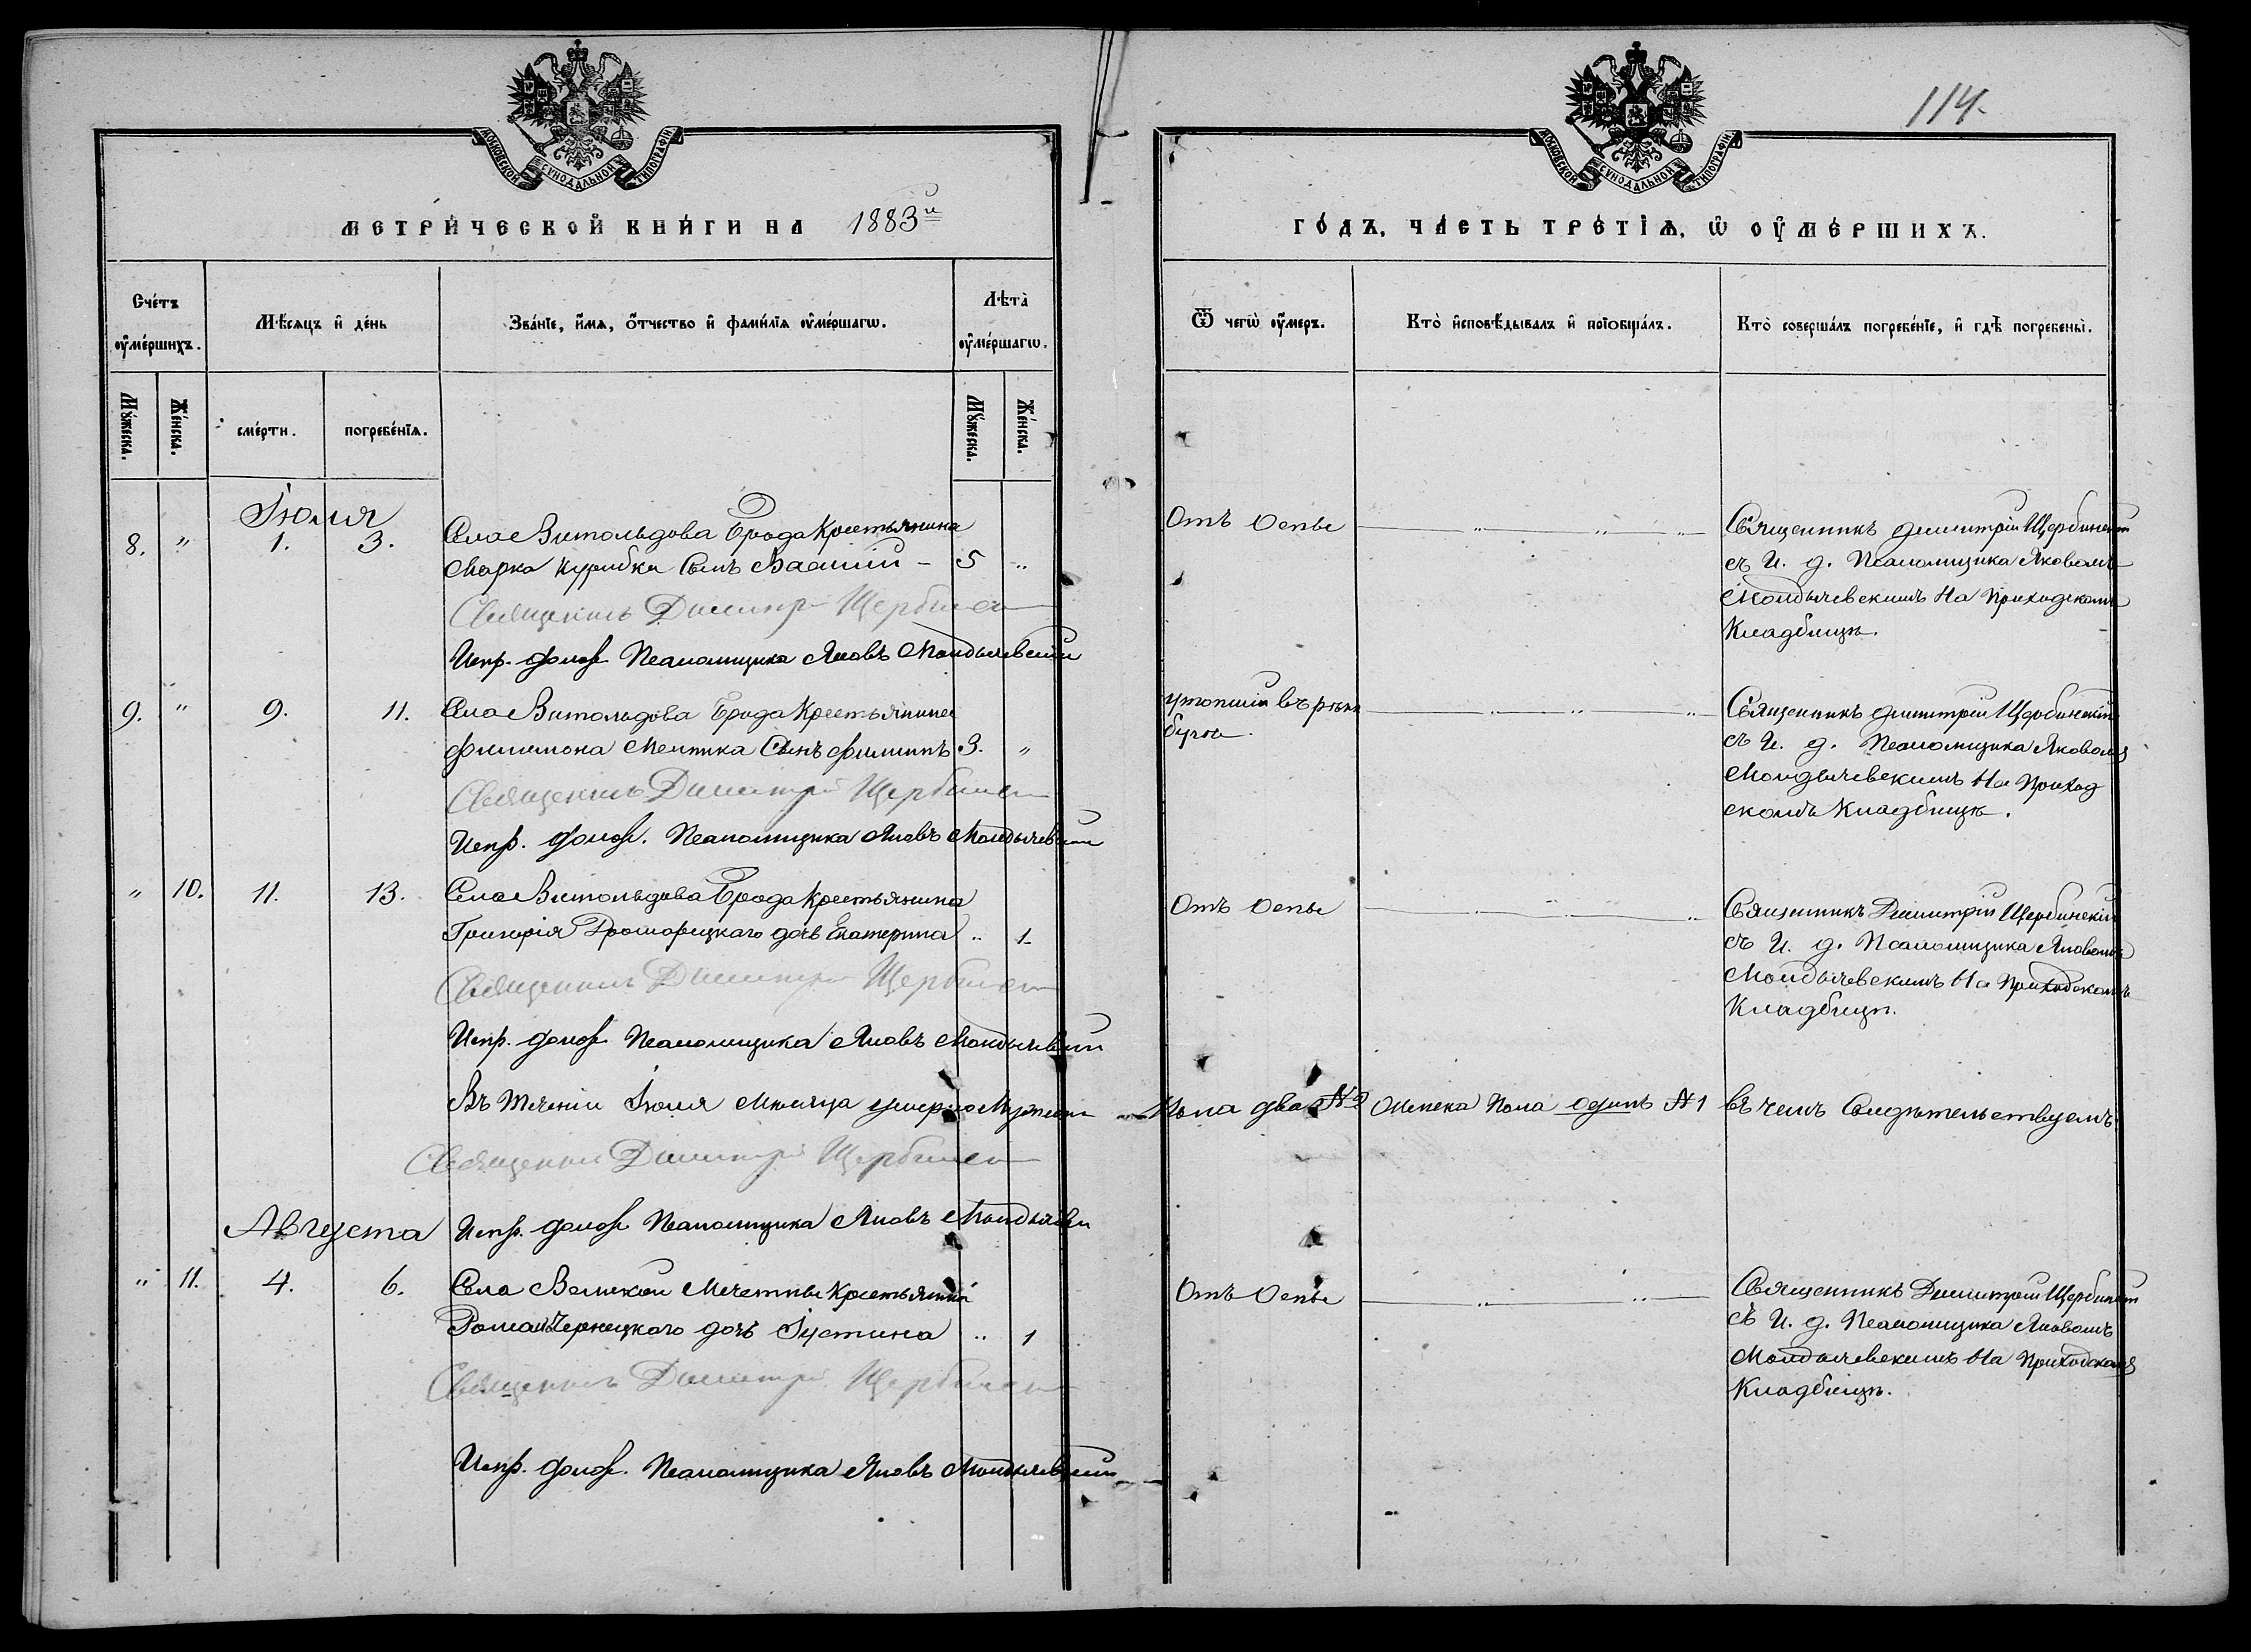 114.
МОСКОВСКОЙ СѴНОДАЛЬНОЙ ТИПОГРАФІИ
МОСКОВСКОЙ СѴНОДАЛЬНОЙ ТИПОГРАФІИ
МЕТРИ́ЧЕСКОЙ КНИ́ГИ НА 1883й
ГО́ДЪ, ЧА́СТЬ ТРЕ́ТІѦ, Ѡ҆ ОУ҆МЕ́РШИХЪ.
Сче́тъ оу҆ме́ршихъ.
Мѣ́сяцъ и҆ де́нь
Зва́нїе, и҆́мѧ, ѻ҆́тчество и҆ фами́лїѧ оу҆ме́ршагѡ.
Лѣ́та оу҆ме́ршагѡ.
Ѿ чегѡ̀ оу҆́меръ.
Кто̀ и҆сповѣ́дывалъ и҆ прїобща́лъ.
Кто̀ соверша́лъ погребе́нїе, и҆ гдѣ̀ погребены̀.
Мꙋ́жеска.
Же́нска.
сме́рти.
погребе́нїѧ.
Мꙋ́жеска.
Же́нска.
Іюля
8. " 1. 3. Села Витольдова Брода Крестьянина
Марка Курибки Сынъ Василій - 5 "
Священникъ Димитрій Щербинскій
Испр. должн. Псаломщика Яковъ Молдычевскій
Отъ Оспы
Священникъ Димитрій Щербинскій
съ И. д. Псаломщика Яковомъ
Молдычевскимъ На Приходскомъ
Кладбищѣ.
9. " 9. 11. Села Витольдова Брода Крестьянина
Филимона Сынъ Филипъ 3. "
Священникъ Димитрій Щербинскій
Испр. должн. Псаломщика Яковъ Молдычевскій
утопшій въ рѣкѣ
бугѣ.
Священникъ Димитрій Щербинскій
съ И. д. Псаломщика Яковомъ
Молдычевскимъ На Приход
скомъ Кладбищѣ.
" 10. 11. 13. Села Витольдова Брода Крестьянина
Григорія дочь Екатерина " 1
Священникъ Димитрій Щербинскій
Испр. должн. Псаломщика Яковъ Молдычевскій
Отъ Оспы
Священникъ Димитрій Щербинскій
съ И. д. Псаломщика Яковомъ
Молдычевскимъ На Приходскомъ
Кладбищѣ.
Въ теченіи Іюля Мѣсяца умерло Мужеска Пола два №2 Женска Пола одинъ №1 въ чемъ Свидѣтельствуемъ.
Священникъ Димитрій Щербинскій
Испр. должн. Псаломщика Яковъ Молдычевскій
Августа
" 11. 4. 6. Села Великой Мечетны Крестьянина
Романа Чернецкаго дочь Іустина " 1
Священникъ Димитрій Щербинскій
Испр. должн. Псаломщика Яковъ Молдычевскій
Отъ Оспы
Священникъ Димитрій Щербинскій
съ И. д. Псаломщика Яковомъ
Молдычевскимъ На Приходскомъ
Кладбищѣ.